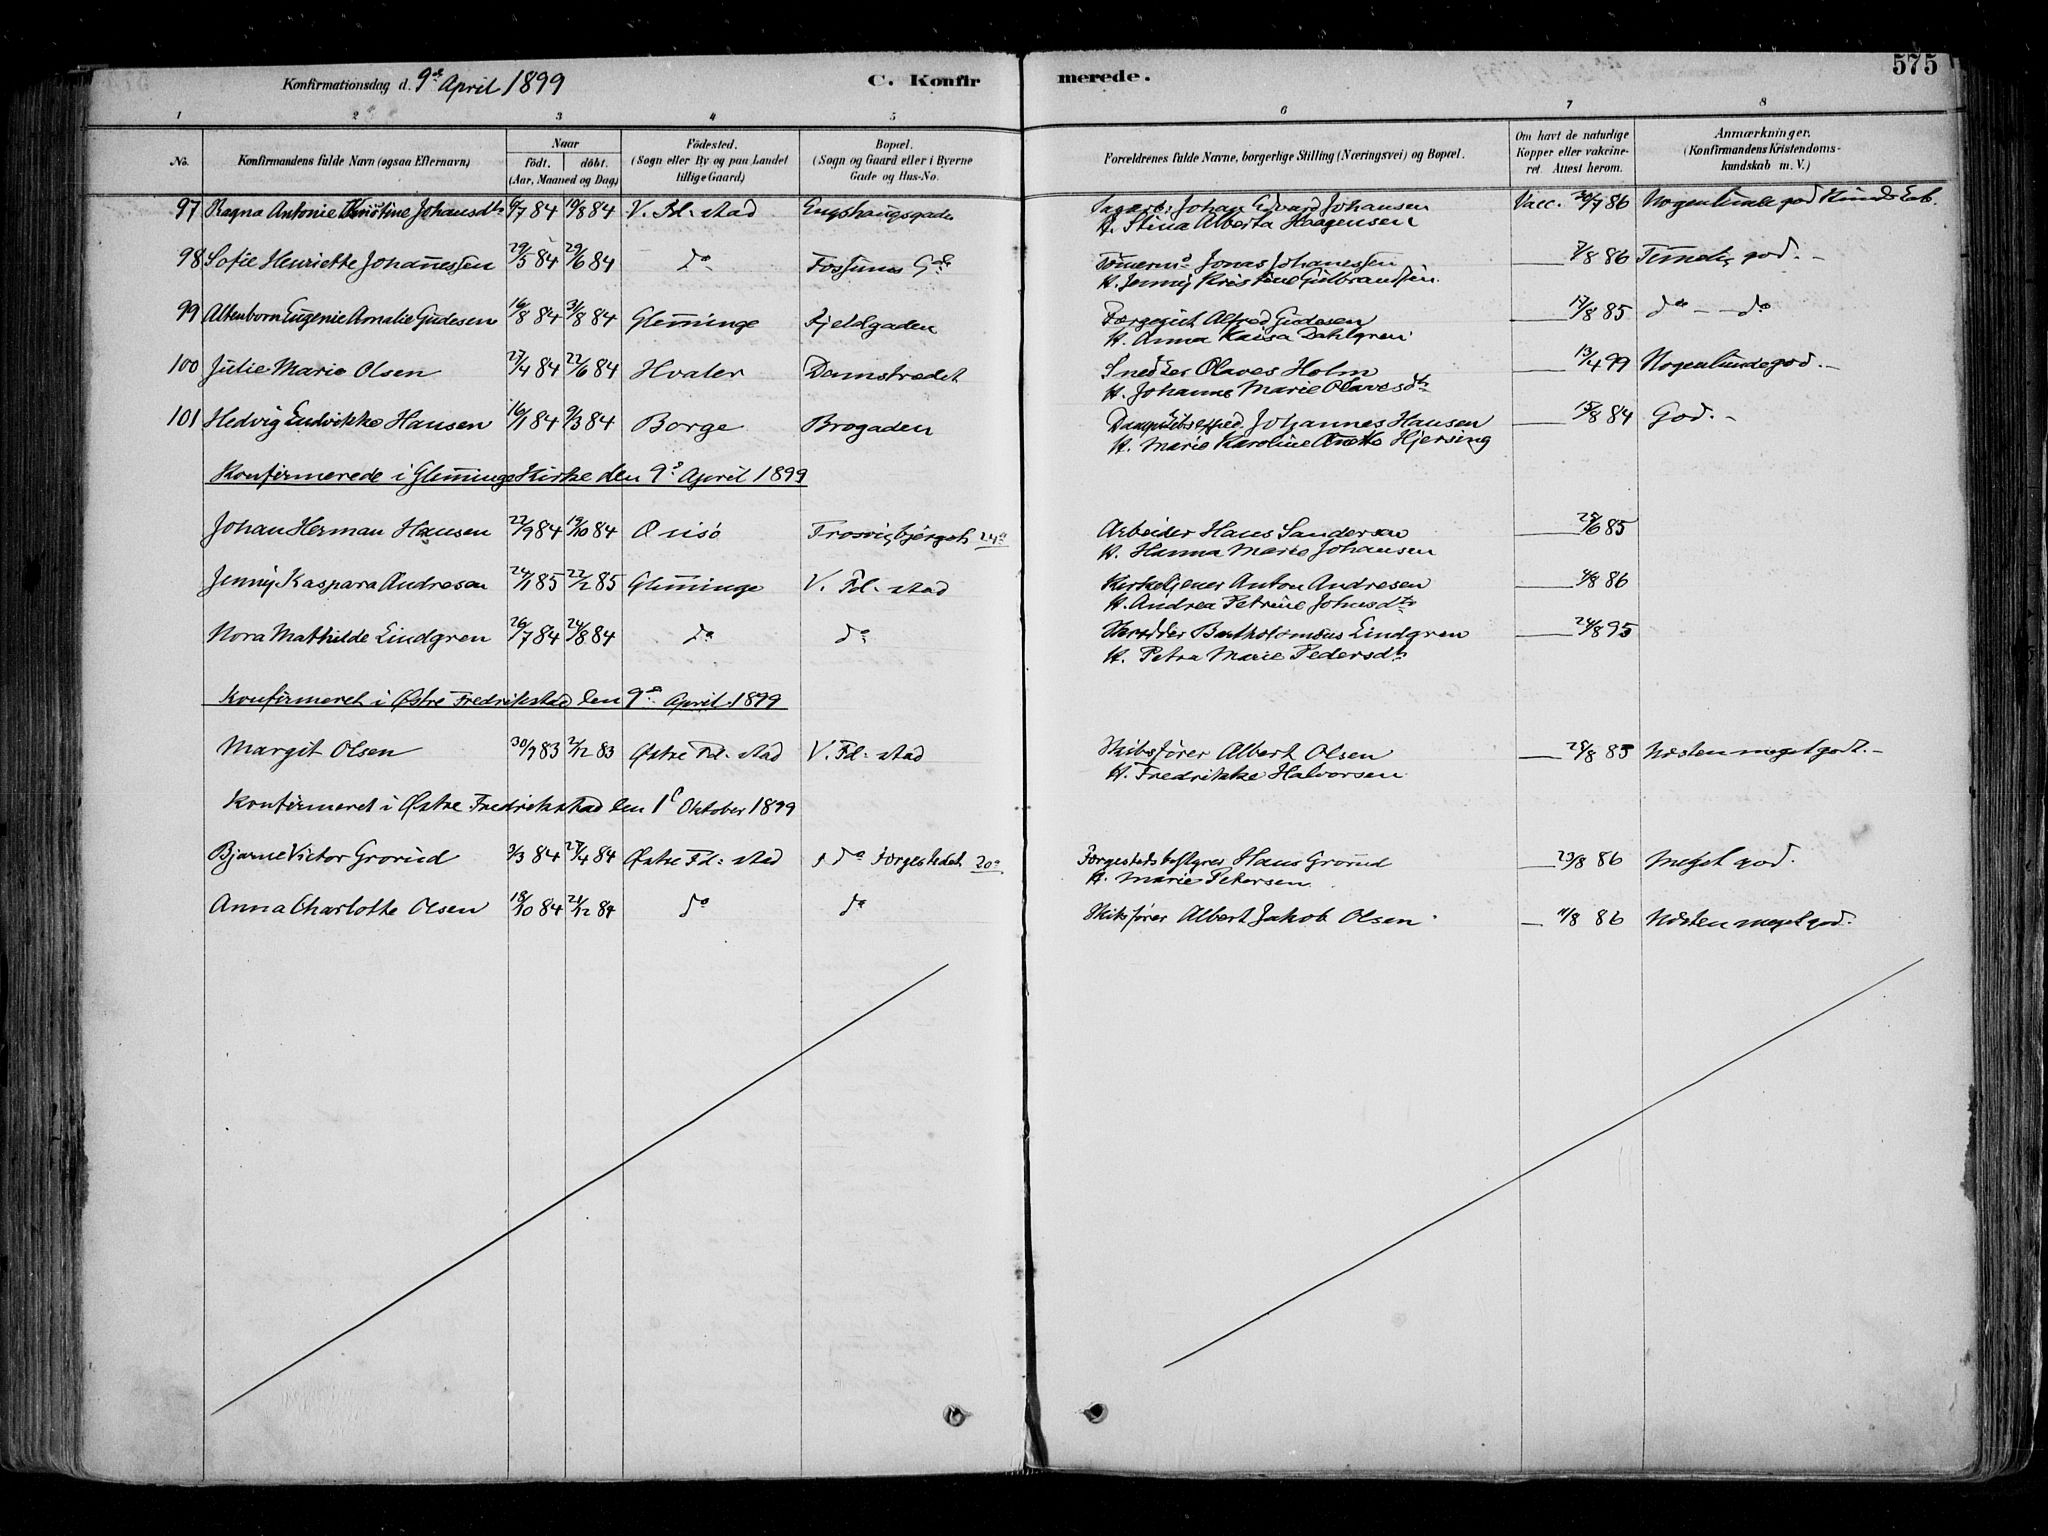 575
Konfirmationsdag d. 9de April 1899 C. Konfirmerede.
1 2 3 4 5 6 7 8
No. Konfirmandens fulde Navn (ogsaa Efternavn) Naar födt. döbt. (Aar, Maaned og Dag) Födested. (Sogn eller By og paa Landet tillige Gaard) Bopæl. (Sogn og Gaard eller i Byerne Gade og Hus-No. Forældrenes fulde Navne, borgerlige Stilling (Næringsvei) og Bopæl. Om havt de naturlige Kopper eller vakcineret. Attest herom. Anmærkninger. (Konfirmandens Kristendomskundskab m. V.)
97 Ragna Antonie Kristine Johansdtr 6/7 84 19/8 84 V. Fd: stad Enghaugsgaden Sagarb: Johan Edvard Johansen Vacc. 30/7 86 Nogenlunde god Kundskab.
H. Stina Alberta Haagensen
98 Sofie Henriette Johannessen 29/5 84 29/6 84 do Fossums Gd Tømerm: Jonas Johanessen 7/8 86 Temelig god. -
H. Jenny Kristine Gulbrandsen
99 Altenborn Eugenie Amalie Gudesen 16/8 84 31/8 84 Glemminge Fjeldgaden Alfred Gudesen 17/8 85 do - do
H. Anna Kaisa Dahlgren.
100 Julie Marie Olsen 27/4 84 22/6 84 Hvaler Damstredet Snedker Olaves Holm 13/4 99 Nogenlunde god. -
H. Johanne Marie Olavesdtr
101 Hedvig Ludvikke Hansen 16/1 84 9/3 84 Borge Brogaden Dampskibsexped. Johannes Hansen 15/8 84 God. -
H. Marie Karoline Anette Hjersing
Konfirmerede i Glemminge Kirke den 9de April 1899
Johan Herman Hansen 22/9 84 19/10 84 Onsö Trosvigbjerget 24a Arbeider Hans Sandersen 25/6 85
H. Hanna Marie Johansen
Jenny Kaspara Andresen 24/1 85 22/2 85 Glemminge V. Fd: stad Kirketjener Anton Andresen 4/8 86
H. Andrea Petrine Johnsdtr
Nora Mathilde Lindgren 26/7 84 24/8 84 do do Skredder Bartholomæus Lindgren 24/8 95
H. Petra Marie Pedersdtr
Konfirmeret i Østre Fredrikstad den 9de April 1899
Margit Olsen 30/9 83 2/12 83 Østre Fd: stad V. Fd: stad Skibsfører Albert Olsen 28/8 85 Næsten meget godt. -
H. Fredrikke Halvorsen
Konfirmeret i Østre Fredrikstad den 1ste Oktober 1899
Bjarne Victor Grorud 3/3 84 27/4 84 Østre Fd: stad do Færgestedet 20a Færgestedsbestyrer Hans Grorud 23/8 86 Meget god.
H. Marie Petersen
Anna Charlotte Olsen 18/10 84 21/12 84 do do Skibsfører Albert Jakob Olsen 11/8 86 Næsten meget god.